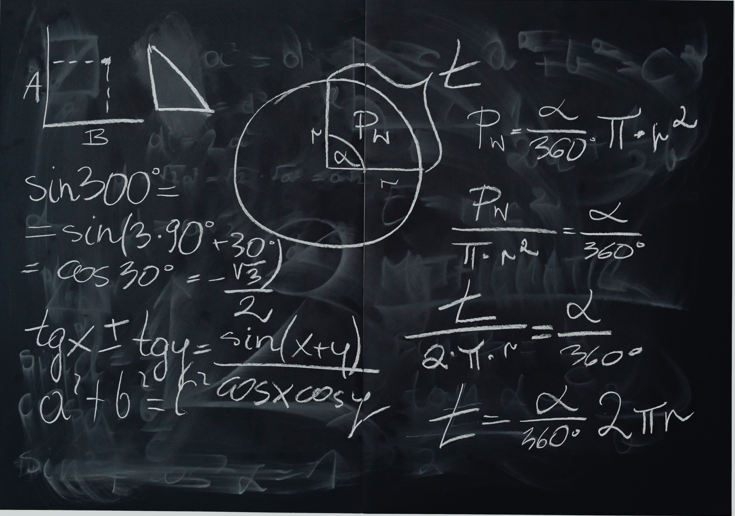 A
B
t
r
P_w
α
r
sin300°=
=sin(3·90°+30°)
= cos30° = -√3/2
tgx ± tgy = sin(x+y)/cosxcosy
a²+b²=c²
P_w = α/360° · π·r²
P_w/π·r² = α/360°
t/2·π·r = α/360°
t = α/360° 2πr